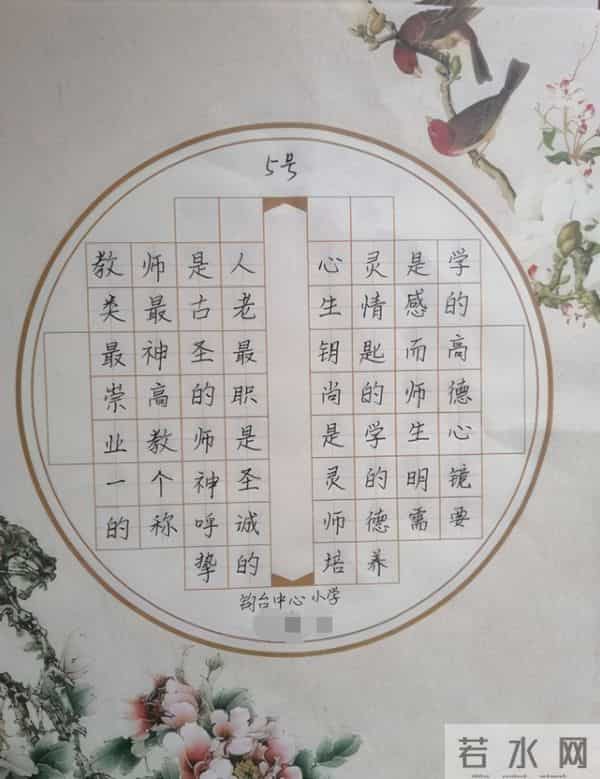 5号
教师是人
类最古老
最神圣最
崇高的职
业教师是
一个神圣
的称呼诚
挚的
心灵是学
生情感的
钥匙而高
尚的师德
是学生心
灵的明镜
师德需要
培养
钧台中心小学
若水网